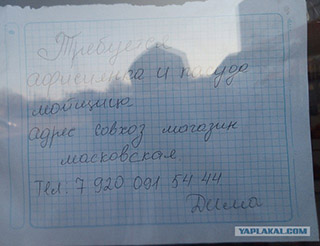 Требуется
афисиянка и пасудо
мойщица
адрес совхоз магазин
масковская
Тел. 7 920 091 54 44
Дима
YAPLAKAL.COM